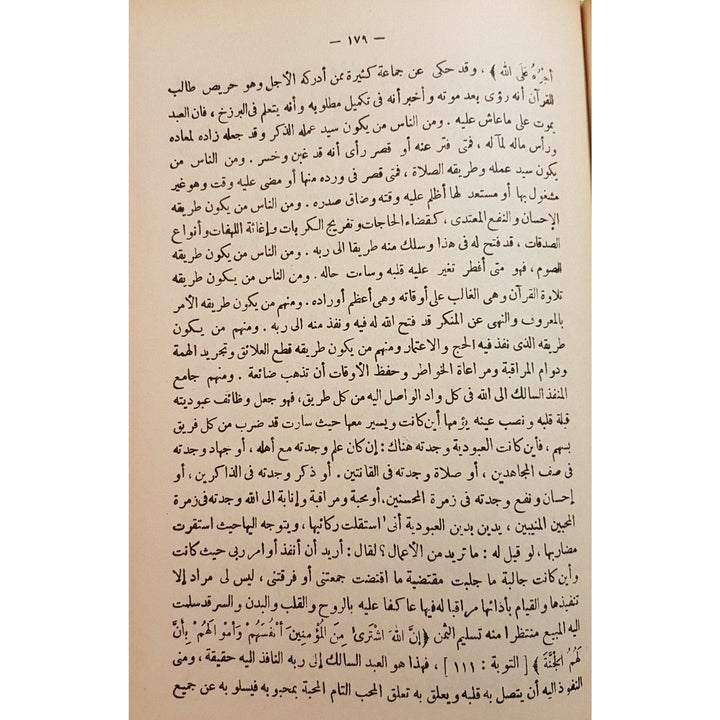 — ١٧٩ —
أَجْرُهُ عَلَى اللهِ ﴾ ، وقد حكى عن جماعة كثيرة ممن أدركه الأجل وهو حريص طالب
للقرآن أنه رؤى بعد موته وأخبر أنه فى تكميل مطلوبه وأنه يتعلم فى البرزخ ، فان العبد
يموت على ماعاش عليه . ومن الناس من يكون سيد عمله الذكر وقد جعله زاده لمعاده
ورأس ماله لمآله ، فمتى فتر عنه أو قصر رأى أنه قد غبن وخسر . ومن الناس من
يكون سيد عمله وطريقه الصلاة ، فمتى قصر فى ورده منها أو مضى عليه وقت وهو غير
مشغول بها أو مستعد لها أظلم عليه وقته وضاق صدره . ومن الناس من يكون طريقه
الإحسان والنفع المعتدى ، كقضاء الحاجات وتفريج الكربات وإغاثة اللهفات وأنواع
الصدقات ، قد فتح له فى هذا وسلك منه طريقا الى ربه . ومن الناس من يكون طريقه
الصوم ، فهو متى أفطر تغير عليه قلبه وساءت حاله . ومن الناس من يكون طريقه
تلاوة القرآن وهى الغالب على أوقاته وهى أعظم أوراده . ومنهم من يكون طريقه الأمر
بالمعروف والنهى عن المنكر قد فتح الله له فيه ونفذ منه الى ربه . ومنهم من يكون
طريقه الذى نفذ فيه الحج والاعتمار ومنهم من يكون طريقه قطع العلائق وتجريد الهمة
ودوام المراقبة ومراعاة الخواطر وحفظ الأوقات أن تذهب ضائعة . ومنهم جامع
المنفذ السالك الى الله فى كل واد الواصل اليه من كل طريق ، فهو جعل وظائف عبوديته
قبلة قلبه ونصب عينه يؤمها أين كانت ويسير معها حيث سارت قد ضرب من كل فريق
بسهم ، فأين كانت العبودية وجدته هناك : إن كان علم وجدته مع أهله ، أو جهاد وجدته
فى صف المجاهدين ، أو صلاة وجدته فى القانتين . أو ذكر وجدته فى الذاكرين ، أو
إحسان ونفع وجدته فى زمرة المحسنين . أو محبة ومراقبة وإنابة الى الله وجدته فى زمرة
المحبين المنيبين ، يدين بدين العبودية أنى استقلت ركائبها ، ويتوجه اليها حيث استقرت
مضاربها ، لو قيل له : ما تريد من الأعمال ؟ لقال : أريد أن أنفذ أوامر ربى حيث كانت
وأين كانت جالبة ما جلبت مقتضية ما اقتضت جمعتنى أو فرقتنى ، ليس لى مراد إلا
تنفيذها والقيام بأدائها مراقبا له فيها عاكفا عليه بالروح والقلب والبدن والسر قد سلمت
اليه المبيع منتظرا منه تسليم الثمن ﴿ إِنَّ اللهَ اشْتَرَىٰ مِنَ الْمُؤْمِنِينَ أَنْفُسَهُمْ وَأَمْوَالَهُمْ بِأَنَّ
لَهُمُ الْجَنَّةَ ﴾ [ التوبة : ١١١ ] ، فهذا هو العبد السالك إلى ربه النافذ اليه حقيقة ، ومنى
النفوذ اليه أن يتصل به قلبه ويعلق به تعلق المحب التام المحبة بمحبوبه فيسلو به عن جميع